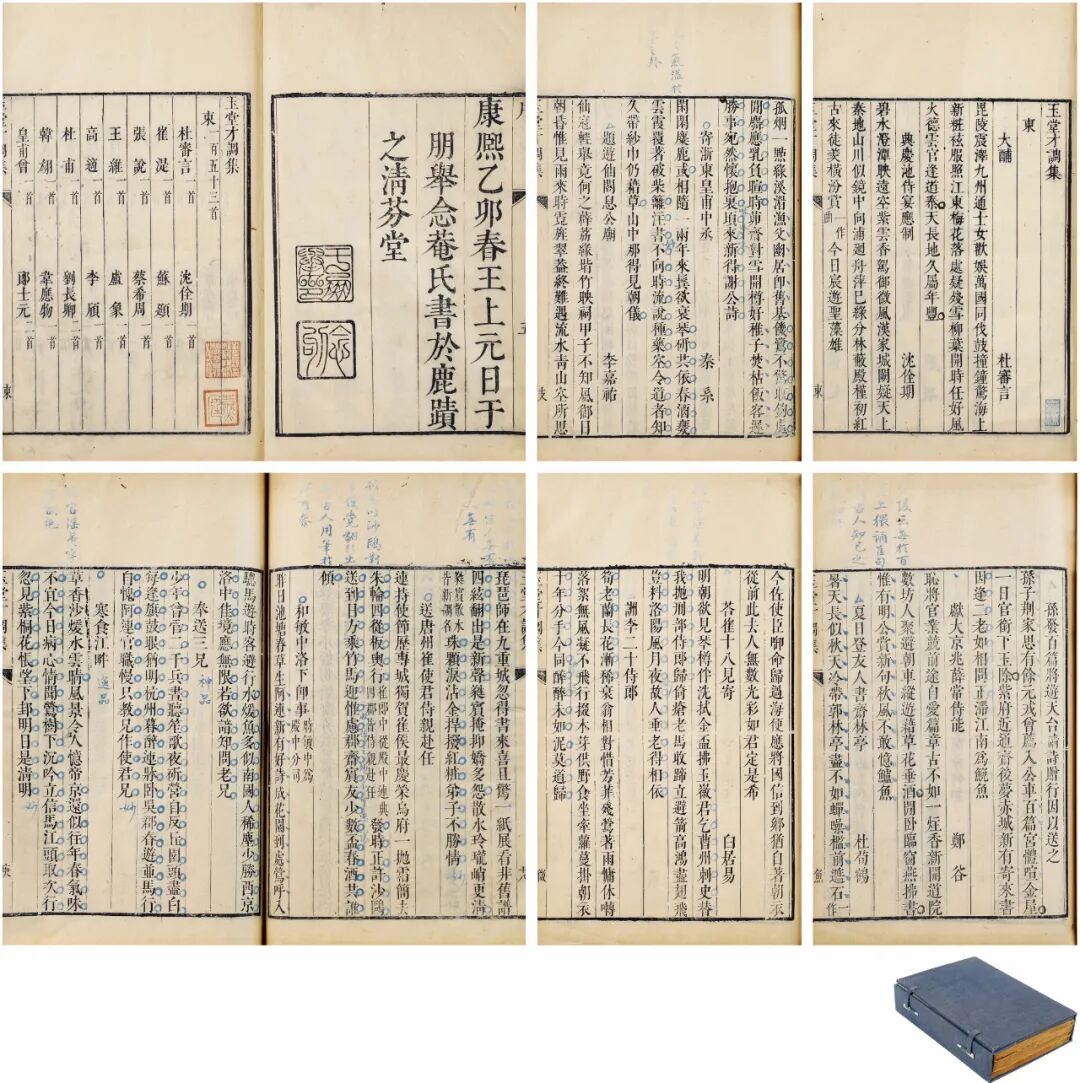 康熙乙卯春王上元日于
朋舉念菴氏書於鹿蹟
之清芬堂
玉堂才調集
東一百五十三首
杜審言一首 沈佺期一首
崔湜一首 蘇頲一首
張說一首 蔡希周一首
王維一首 盧象一首
高適一首 李頎一首
杜甫一首 劉長卿一首
韓翃一首 韋應物二首
皇甫曾一首 郎士元二首
孤烟一點綠溪湄漁父閑居卽舊基
開鷪應乳負暄時茆齋對雪開樽好稚子焚枯飯客遲
勝事宛然懷抱裏頃來新得謝公詩
寄浙東皇甫中丞 秦系
閑閑麋鹿或相隨一兩年來鬂欲衰琴硯共依春酒甕
雲霞覆著破柴籬注書不向時流說種藥空令道者知
久帶紗巾仍藉草山中那得見朝儀
題遊仙閣息公廟 李嘉祐
仙冠輕舉竟何之薜荔緣堦竹映祠甲子不知風御日
朝昏惟見雨來時霓旌翠葢終難遇流水青山空所思
玉堂才調集
東
大酺 杜審言
毘陵震澤九州通士女歡娛萬國同伐鼓撞鐘驚海上
新粧袨服照江東梅花落處疑殘雪柳葉開時任好風
火德雲官逢道泰天長地久屬年豐
興慶池侍宴應制 沈佺期
碧水澄潭映遠空紫雲香駕御微風漢家城闕疑天上
秦地山川似鏡中向浦迴舟萍已綠分林蔽殿槿初紅
古來徒奏橫汾賞今日宸遊聖藻雄
琵琶師在九重城忽得書來喜且驚一紙展看非舊譜
四絃翻出是新聲蕤賓掩抑嬌多怨散水玲瓏峭更清
珠顆淚沾金捍撥紅粧弟子不勝情
送唐州崔使君侍親赴任
連持使節歷專城獨賀崔侯最慶榮烏府一拋霜簡去
朱輪四從板輿行發時正許沙鷗
送到日方乘竹馬迎惟慮郡齋賓友少數盃春酒共誰
傾
和敏中洛下卽事
昨日池塘春草生阿連新有好詩成花園到處鶯呼入
驄馬遊時客避行水煖魚多似南國人稀塵少勝西京
洛中佳境應無限若欲諳知問老兄
奉送三兄
少年曾管二千兵晝聽笙歌夜斫營自反丘園頭盡白
每逢旗鼓眼猶明杭州暮醉連牀臥吳郡春遊並馬行
自愧阿連官職慢只教兄作使君兄
寒食江畔
草香沙煖水雲晴風景令人憶帝京還似往年春氣味
不宜今日病心情聞鶯樹下沉吟立信馬江頭取次行
忽見紫桐花悵望下邽明日是清明
今佐使臣聊命歸過海便應將國信到鄉猶自著朝衣
從前此去人無數光彩如君定是希
荅崔十八見寄 白居易
明朝欲見琴樽伴洗拭金盃拂玉徽君乞曹州刺史替
我拋刑部侍郎歸倚瘡老馬收蹄立避箭高鴻盡翅飛
豈料洛陽風月夜故人垂老得相依
詶李二十侍郎
筍老蘭長花漸稀衰翁相對惜芳菲殘鶯著雨慵休囀
落絮無風凝不飛行掇木芽供野食坐牽蘿蔓掛朝衣
十年分手今同醉醉未如泥莫道歸
孫發百篇將遊天台請詩贈行因以送之
孫子荆家思有餘元戎曾薦入公車百篇宮體喧金屋
一日官銜下玉除紫府近通齋後夢赤城新有寄來書
因逢二老如相問正滯江南爲鮠魚
獻大京兆薛常侍能 鄭谷
恥將官業競前途自愛篇章古不如一炷香新開道院
數坊人聚避朝車縱遊藉草花垂酒閒臥臨窗燕拂書
惟有明公賞新句秋風不敢憶鱸魚
夏日登友人書齋林亭 杜荀鶴
暑天長似秋天冷帶郭林亭盡不如蟬噪檻前遮